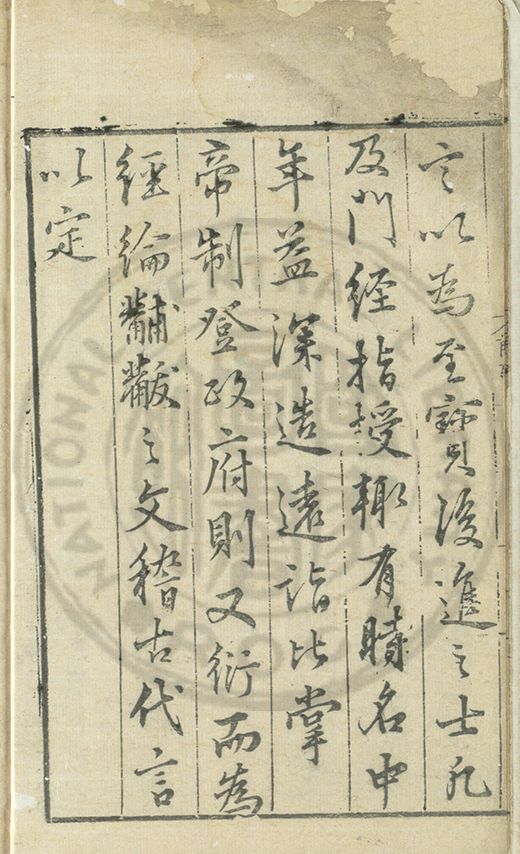 言以為至寶後進之士凡
及門經指授輒有時名中
年益深造遠詣比掌
帝制登政府則又衍而為
經綸黼黻之文稽古代言
以定